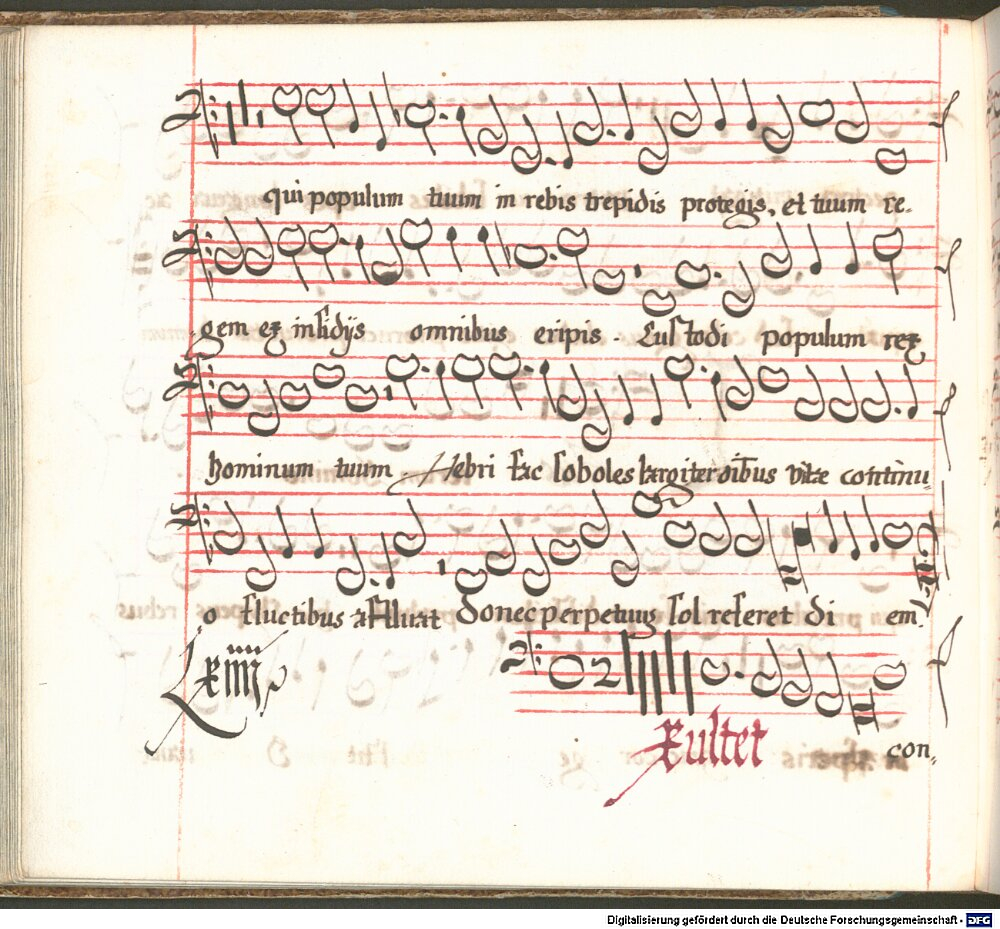 qui populum tuum in rebis trepidis protegis, et tuum re-
gem ex insidijs omnibus eripis. Custodi populum rex
hominum tuum. Hebri fac soboles largiter oībus vitæ continu-
o fluctibus affluat Donec perpetuus sol referet di em.
Lxiiii
Exultet
con-
Digitalisierung gefördert durch die Deutsche Forschungsgemeinschaft - DFG